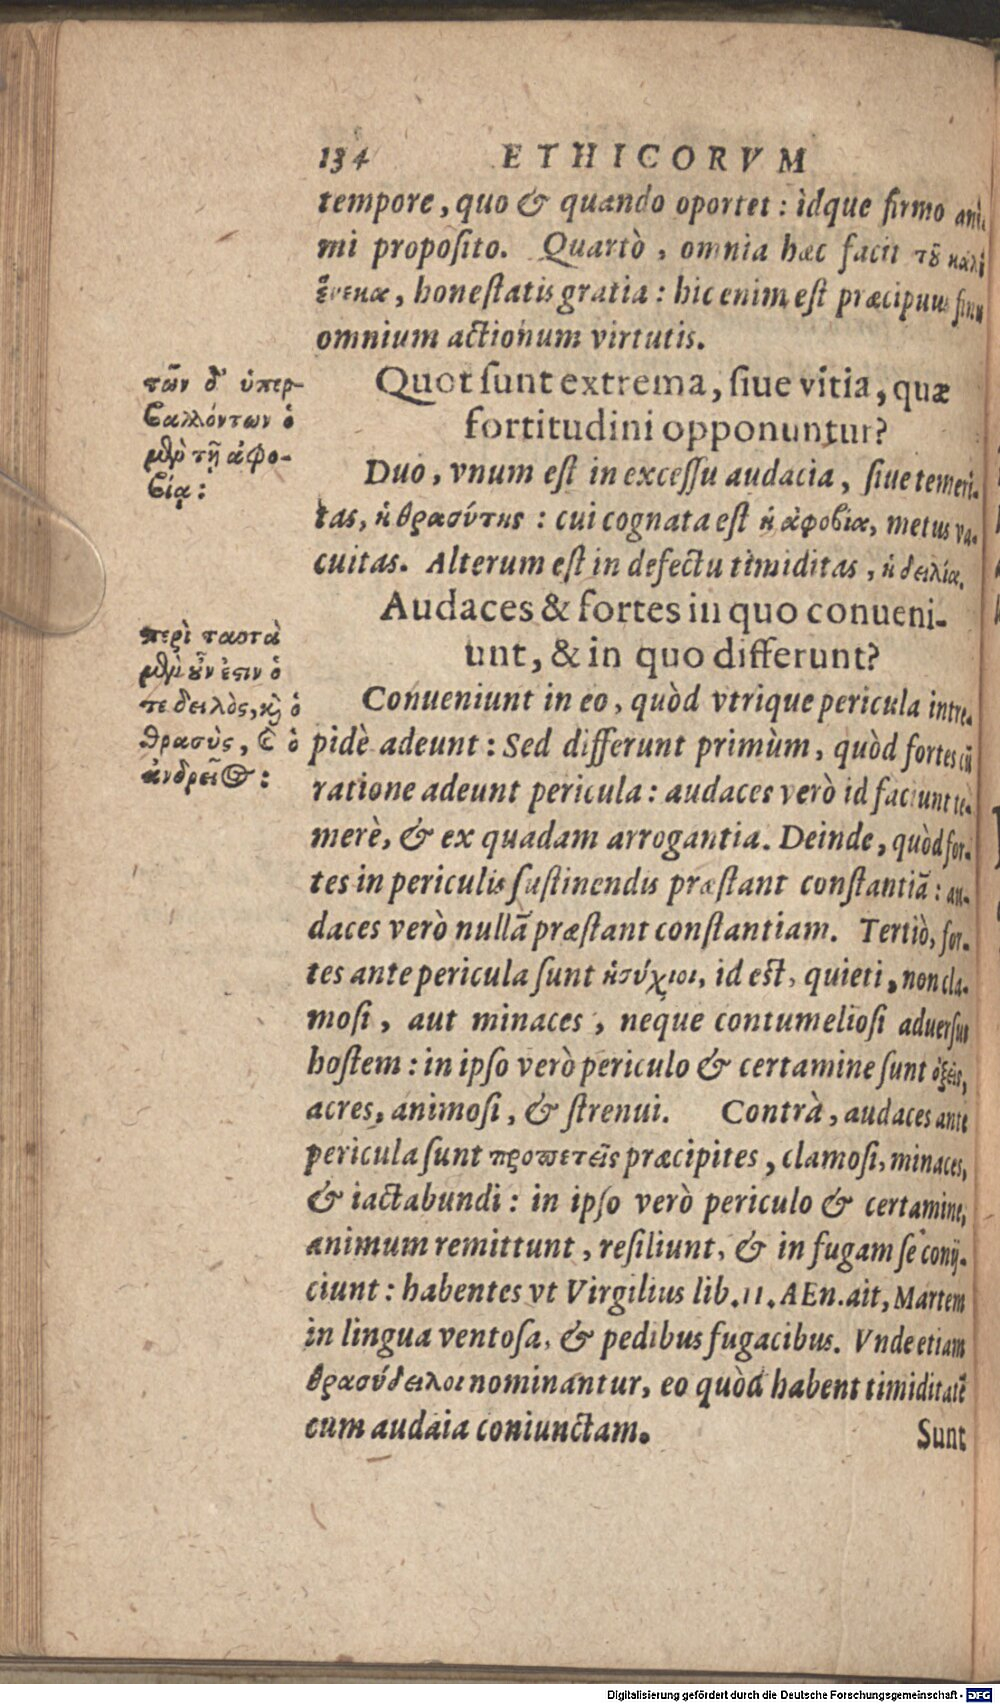 134 ETHICORVM
tempore, quo & quando oportet: idque firmo ani-
mi proposito. Quartò, omnia hæc facit τȣ͂ καλȣ͂
ἕνεκα, honestatis gratia: hic enim est præcipuus finis
omnium actionum virtutis.
τῶν δ' ὑπερ-
βαλλόντων ὁ
μὲν τῇ ἀφο-
βίᾳ:
Quot sunt extrema, siue vitia, quæ
fortitudini opponuntur?
Duo, vnum est in excessu audacia, siue temeri-
tas, ἡ θρασύτης: cui cognata est ἡ ἀφοβία, metus va-
cuitas. Alterum est in defectu timiditas, ἡ δειλία.
Audaces & fortes in quo conueni-
unt, & in quo differunt?
περὶ ταυτὰ
μὲν ȣ͂̓ν ἐστιν ὁ
τε δειλὸς, καὶ ὁ
θρασὺς, καὶ ὁ
ἀνδρεῖος:
Conueniunt in eo, quòd vtrique pericula intre-
pidè adeunt: Sed differunt primùm, quòd fortes cū
ratione adeunt pericula: audaces verò id faciunt te-
merè, & ex quadam arrogantia. Deinde, quòd for-
tes in periculis sustinendis præstant constantiā: au-
daces verò nullā præstant constantiam. Tertiò, for-
tes ante pericula sunt ἡσύχιοι, id est, quieti, non cla-
mosi, aut minaces, neque contumeliosi aduersus
hostem: in ipso verò periculo & certamine sunt ὀξεῖς,
acres, animosi, & strenui. Contrà, audaces ante
pericula sunt προπετεῖς præcipites, clamosi, minaces,
& iactabundi: in ipso verò periculo & certamine,
animum remittunt, resiliunt, & in fugam se conij-
ciunt: habentes vt Virgilius lib. 11. AEn. ait, Martem
in lingua ventosa, & pedibus fugacibus. Vnde etiam
θρασύδειλοι nominantur, eo quòd habent timiditatē
cum audaia coniunctam.
Sunt
Digitalisierung gefördert durch die Deutsche Forschungsgemeinschaft - DFG